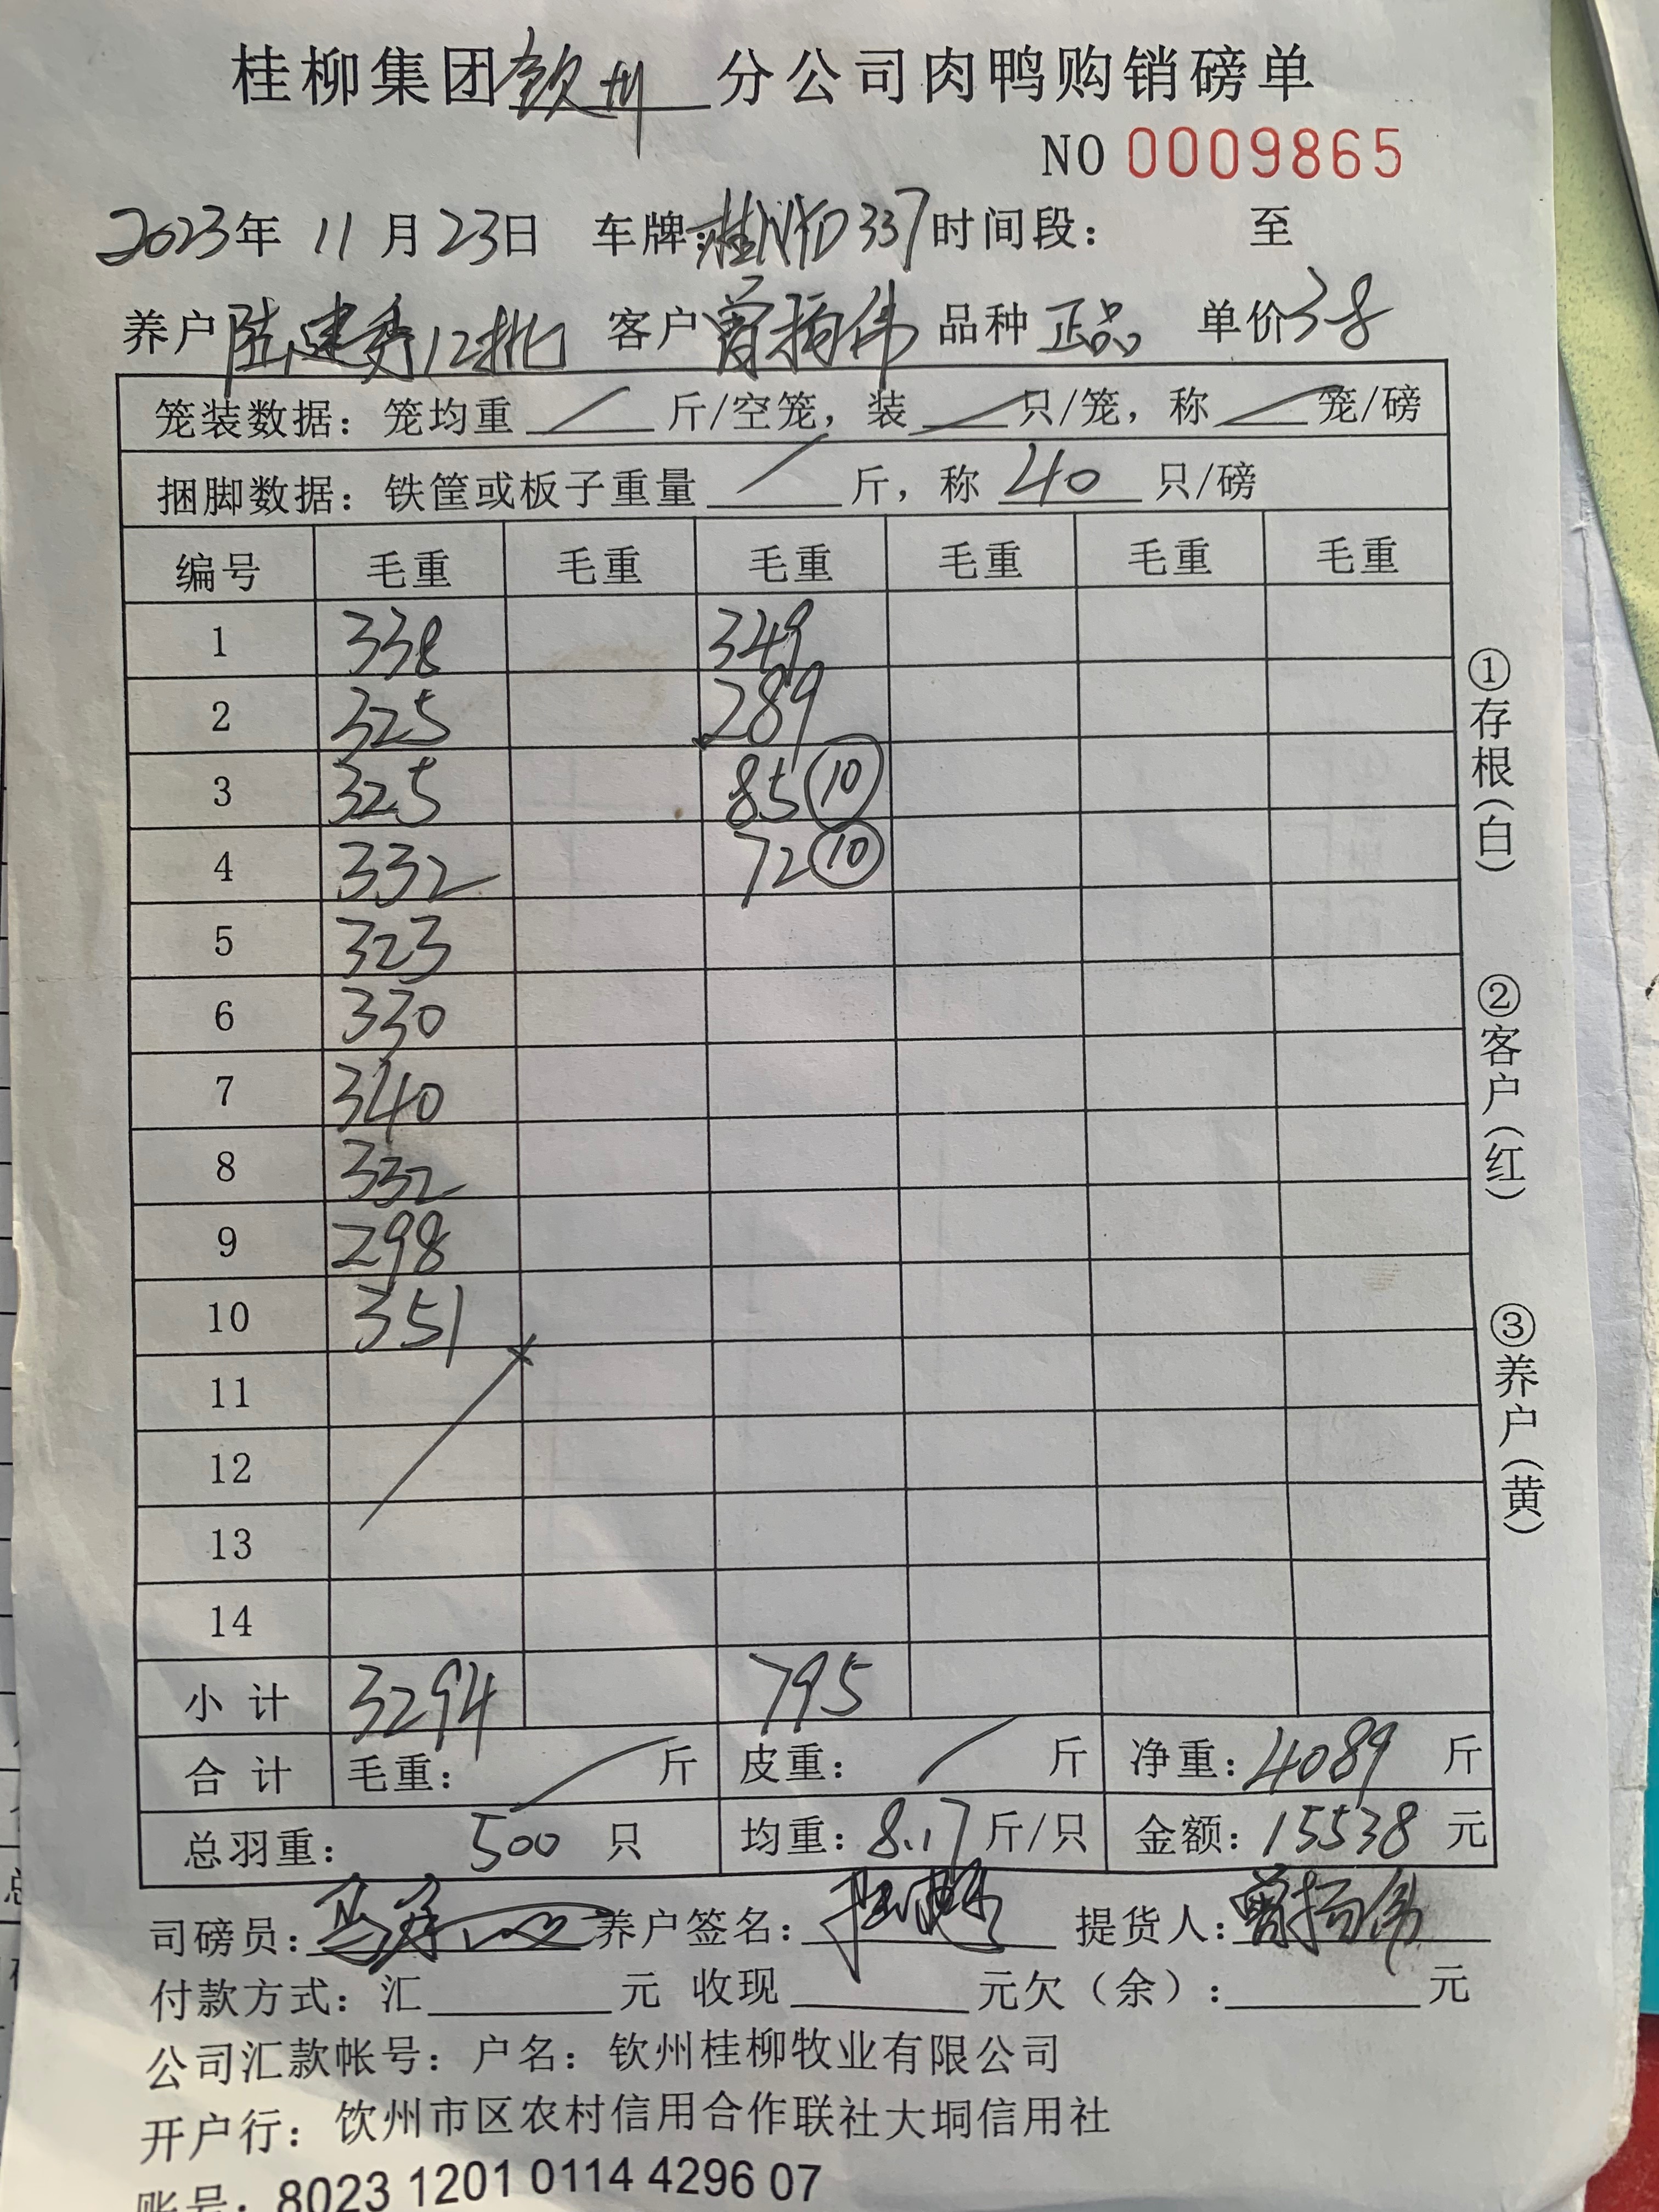 桂柳集团钦州分公司肉鸭购销磅单
NO 0009865
2023年 11月23日 车牌:桂 337时间段: 至
养户陆建 12批 客户曾扬伟 品种正品 单价38
笼装数据: 笼均重 / 斤/空笼, 装 / 只/笼, 称 / 笼/磅
捆脚数据: 铁筐或板子重量 / 斤, 称 40 只/磅
编号 毛重 毛重 毛重 毛重 毛重 毛重
1 338 349
2 325 289
3 325 85⑩
4 332 72⑩
5 323
6 330
7 340
8 332
9 298
10 351
11
12
13
14
小计 3294 795
合计 毛重: / 斤 皮重: / 斤 净重:4089 斤
总羽重: 500 只 均重:8.17斤/只 金额:15538 元
司磅员: 养户签名: 提货人:曾扬伟
付款方式: 汇 元 收现 元欠(余): 元
公司汇款帐号: 户名: 钦州桂柳牧业有限公司
开户行: 饮州市区农村信用合作联社大垌信用社
账号: 8023 1201 0114 4296 07
①存根(白)
②客户(红)
③养户(黄)